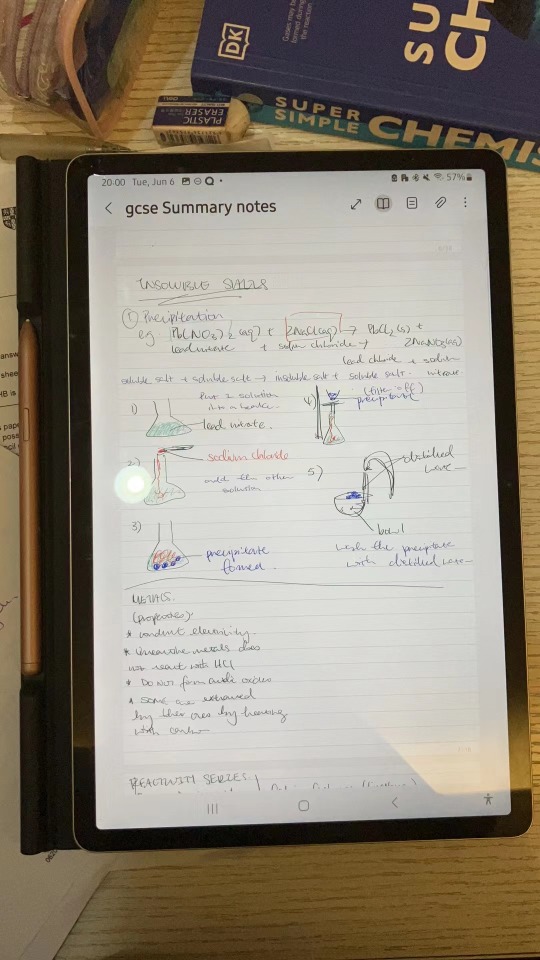 DK
Gases may be
formed during
the reaction
SU
CH
SUPER
SIMPLE
CHEMIS
PLASTIC
ERASER
20:00 Tue, Jun 6
57%
gcse Summary notes
INSOLUBLE SALTS
① Precipitation
eg Pb(NO3)2 (aq) + 2NaCl(aq) → PbCl2(s) +
2NaNO3(aq)
lead nitrate + sodium chloride →
lead chloride + sodium
nitrate
soluble salt + soluble salt → insoluble salt + soluble salt.
1)
Put 1 solution
into a beaker
lead nitrate.
2)
sodium chloride
add the other
solution
3)
precipitate
formed.
4)
(filter off)
precipitate
5)
distilled
bowl
wash the precipitate
with distilled
METALS.
(properties)
* conduct electricity.
* Unreactive metals does
not react with HCl
* Do not form acidic oxides
* Some are extracted
by their ores by heating
with carbon
REACTIVITY SERIES